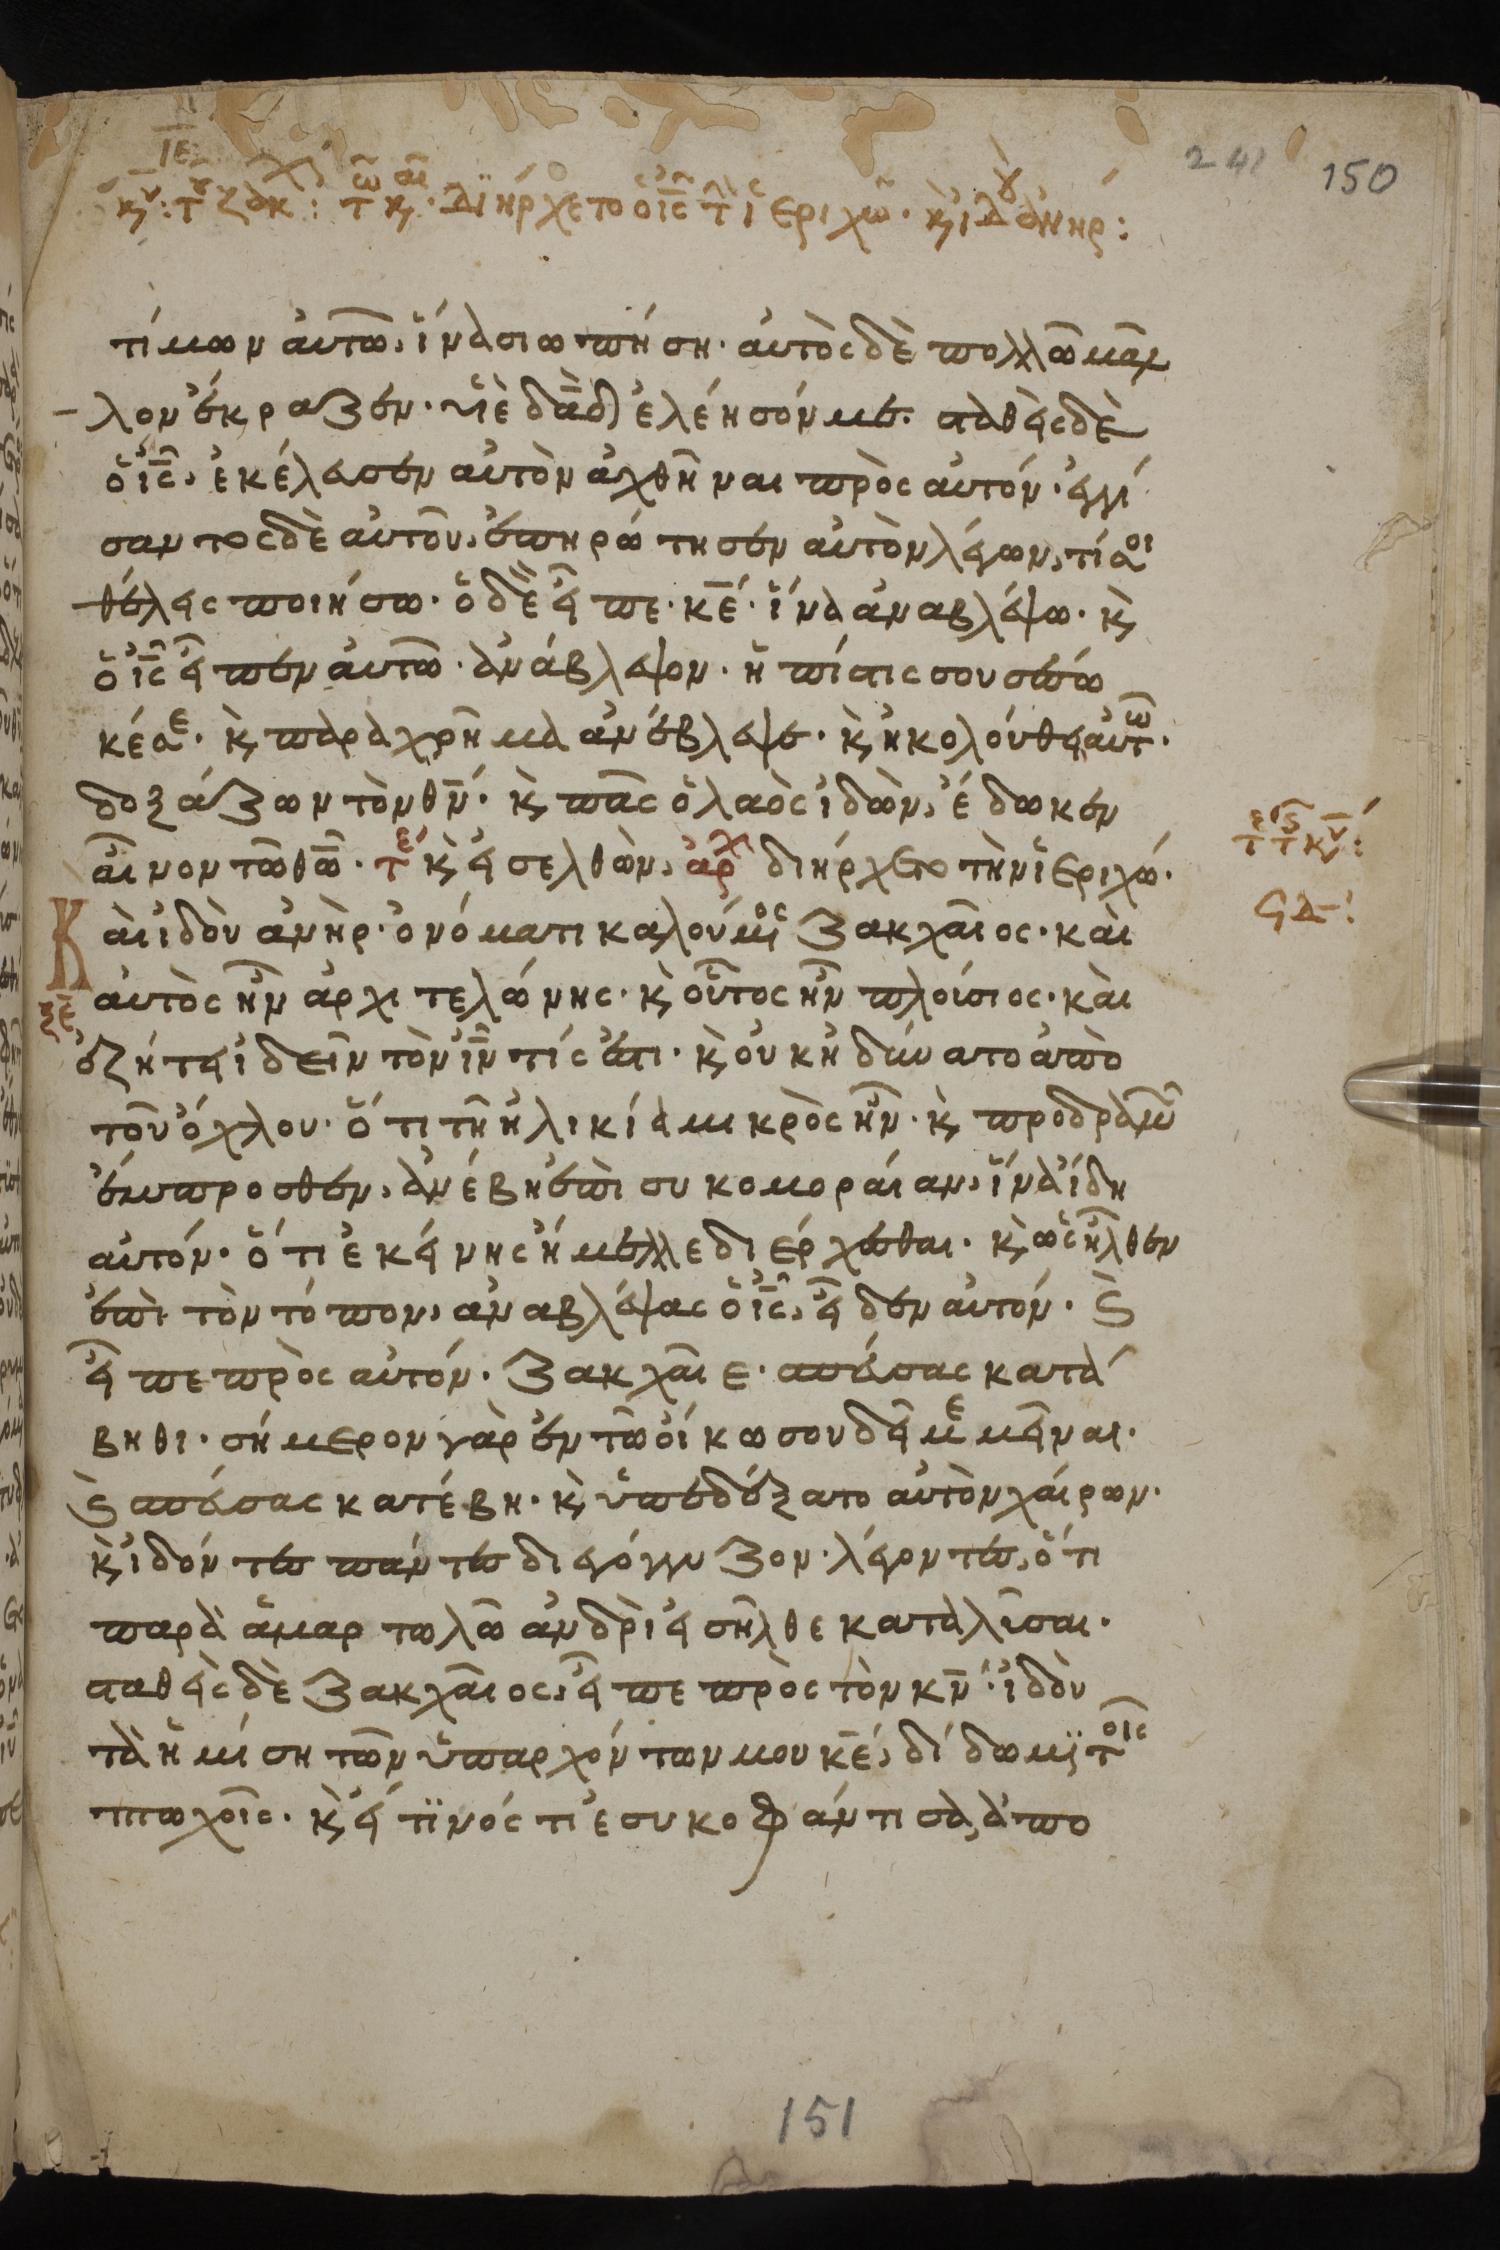 241 150
ιε
κυ: τ ζακ: τω καιρω διήρχετο ὁ ις τ ἱεριχῶ· κ ιδου ἀνηρ:
τίμων αὐτῶ, ἵνα σιωπήση· αὐτὸς δὲ πολλῶ μᾶλ
λον ἔκραζεν· υἱὲ δαδ ἐλέησόν με· σταθεὶς δὲ
ὁ ις, ἐκέλευσεν αὐτὸν ἀχθῆναι πρὸς αὐτόν· ἐγγί
σαντος δὲ αὐτοῦ, ἐπηρώτησεν αὐτὸν λέγων, τί σοι
θέλεις ποιήσω· ὁ δὲ εἶπε· κε· ἵνα ἀναβλέψω· κ
ὁ ις εἶπεν αὐτῶ· ἀνάβλεψον· ἡ πίστις σου σέσω
κέ σε· κ παραχρῆμα ἀνέβλεψε· κ ἠκολούθει αὐτῶ·
δοξάζων τὸν θν· κ πᾶς ὁ λαὸς ἰδὼν, ἔδωκεν
αἶνον τῶ θῶ· τε κ εἰσελθὼν, αρχ διήρχετο τὴν ἱεριχώ·
τε τς κυ:
ϟδ:
Κὰι ἰδοὺ ἀνὴρ· ὀνόματι καλούμενος ζακχαῖος· κὰι
ξε
αὐτὸς ἦν ἀρχιτελώνης· κ οὗτος ἦν πλούσιος· κὰι
ἐζήτει ἰδεῖν τὸν ιν τίς ἐστι· κ οὐκ ἠδύνατο ἀπὸ
τοῦ ὄχλου· ὅτι τῆ ἡλικία μικρὸς ἦν· κ προδραμὼν
ἔμπροσθεν, ἀνέβη ἐπὶ συκομοραίαν, ἵνα ἴδη
αὐτόν· ὅτι ἐκείνης ἤμελλε διέρχεσθαι· κ ὡς ἦλθεν
ἐπὶ τὸν τόπον, ἀναβλέψας ὁ ις, εἶδεν αὐτόν· κ
εἶπε πρὸς αὐτόν· ζακχαῖε· σπεύσας κατά
βηθι· σήμερον γὰρ ἐν τῶ οἴκω σου δεῖ με μεῖναι·
κ σπεύσας κατέβη· κ ὑπεδέξατο αὐτὸν χαίρων·
κ ἰδόντες πάντες διεγόγγυζον· λέγοντες, ὅτι
παρὰ ἁμαρτωλῶ ἀνδρὶ εἰσῆλθε καταλῦσαι·
σταθεὶς δὲ ζακχαῖος, εἶπε πρὸς τὸν κν· ἰδοὺ
τὰ ἡμίση τῶν ὑπαρχόντων μου κε, δίδωμι τοῖς
πτωχοῖς· κ εἴ τινός τι ἐσυκοφάντισα, ἀπο
151